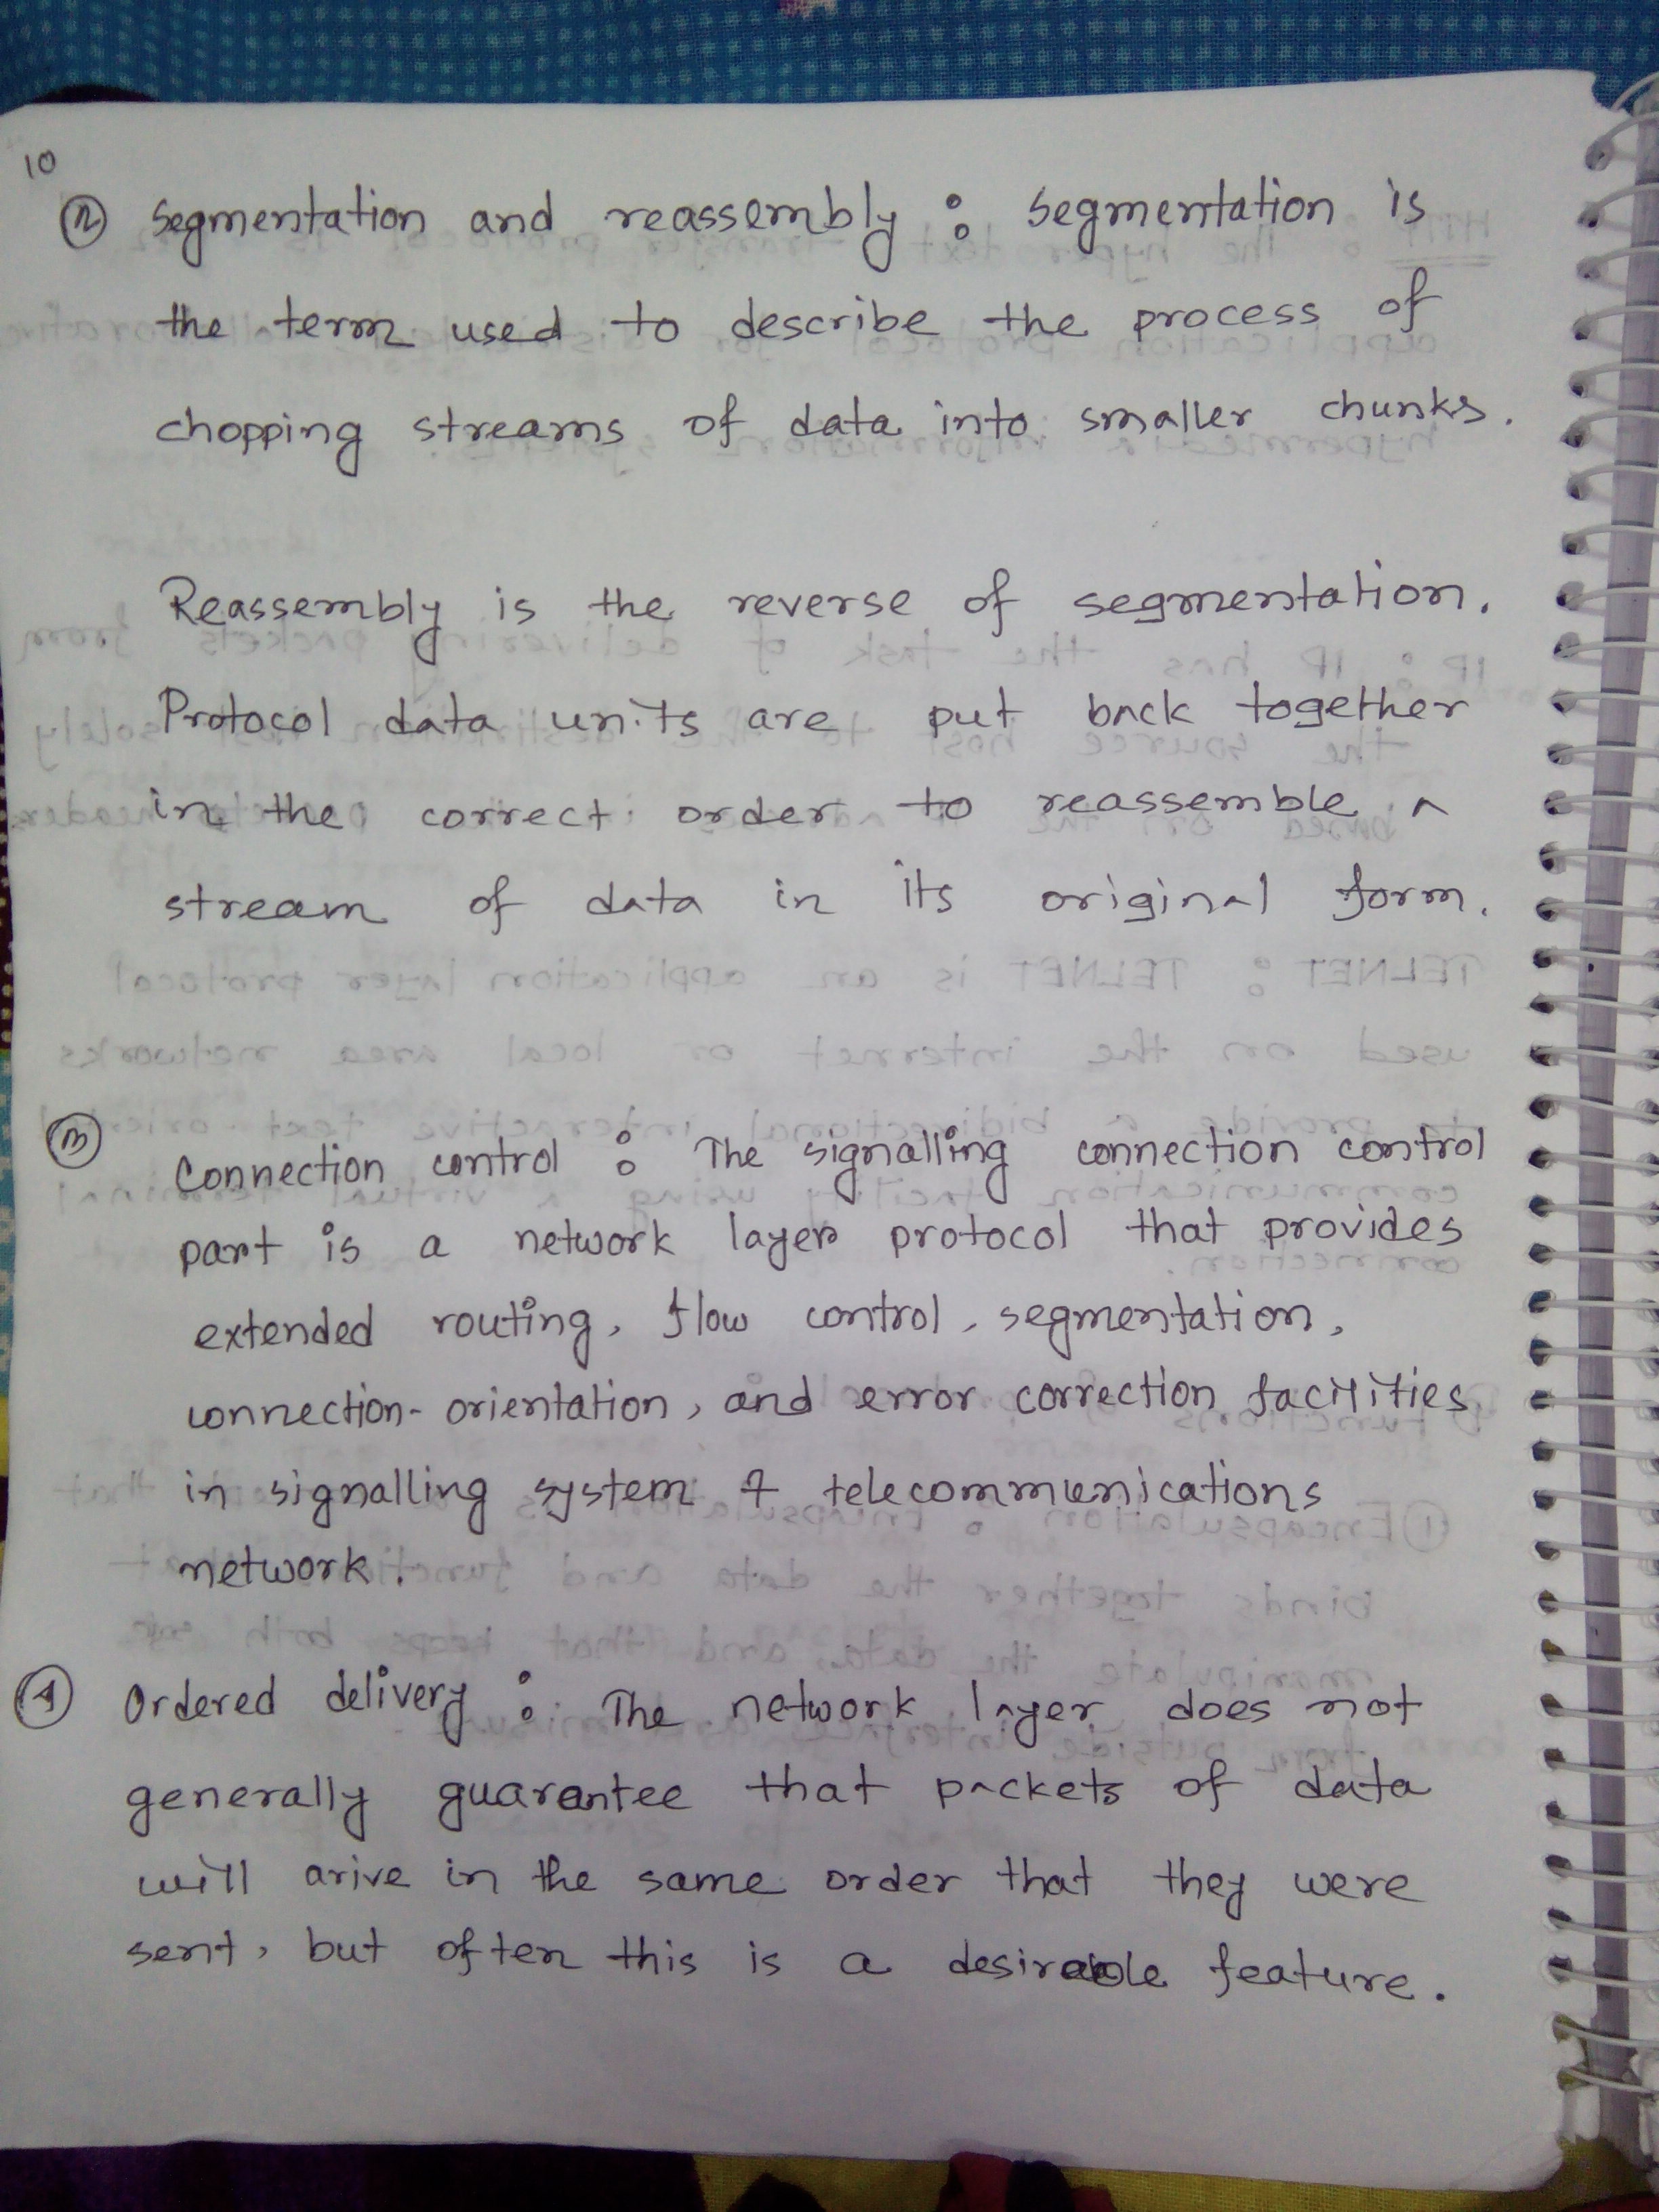 10
② Segmentation and reassembly : Segmentation is
the term used to describe the process of
chopping streams of data into smaller chunks.
Reassembly is the reverse of segmentation.
Protocol data units are put back together
in the correct order to reassemble a
stream of data in its original form.
③ Connection control : The signalling connection control
part is a network layer protocol that provides
extended routing, flow control, segmentation,
connection-orientation, and error correction facilities
in signalling system 7 telecommunications
network.
④ Ordered delivery : The network layer does not
generally guarantee that packets of data
will arive in the same order that they were
sent, but often this is a desirable feature.